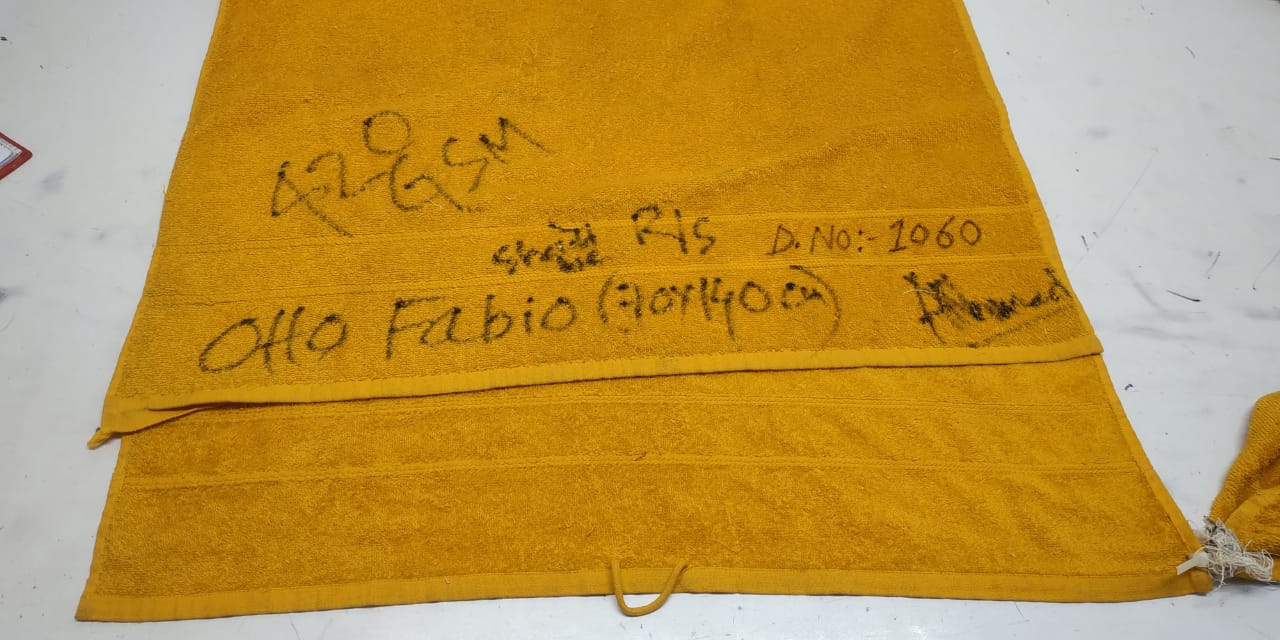 420 GSM
R/s D.No:- 1060
Otto Fabio (70x140 cm)